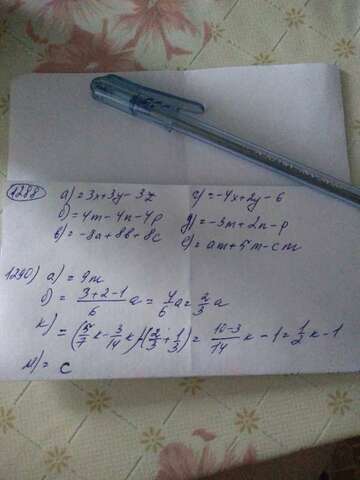 1288 а) = 3x+3y-3z г) = -4x+2y-6
б) = 4m-4n-4p д) = -3m+2n-p
в) = -8a+8b+8c е) = am+5m-cm
1290) а) = 9m
б) = \frac{3+2-1}{6}a = \frac{4}{6}a = \frac{2}{3}a
к) = (\frac{5}{7}k-\frac{3}{14}k)-(\frac{2}{3}+\frac{1}{3}) = \frac{10-3}{14}k-1 = \frac{1}{2}k-1
м) = c